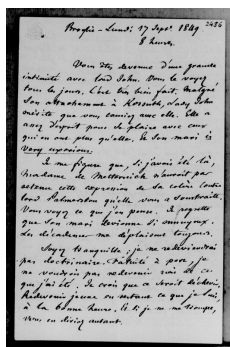 2486
Broglie - Lundi 17 Sept. 1849
8 heures.
Vous êtes devenue d'une grande
intimité avec lord John. Vous le voyez
tous les jours. C'est bien fait. Malgré
son attachement à Kossuth, Lady John
mérite que vous causiez avec elle. Elle a
assez d'esprit pour se plaire avec ceux
qui en ont plus qu'elle. Et son mari is
very uxorious.
Je me figure que, si j'avais été là,
Madame de Metternich n'auroit pas
retenu cette expression de sa colère contre
lord Palmerston qu'elle vous a soustraite.
Vous voyez ce que j'en pense. Je regrette
que son mari devienne si ennuyeux.
Les décadences me déplaisent toujours.
Soyez tranquille, je ne redeviendrai
pas doctrinaire. Vanité à part, je
ne voudrois pas redevenir rien de ce
que j'ai été. Je crois que ce seroit déchoir.
Redevenir jeune en restant ce que je suis,
à la bonne heure. Et si je ne me trompe,
vous en diriez autant.